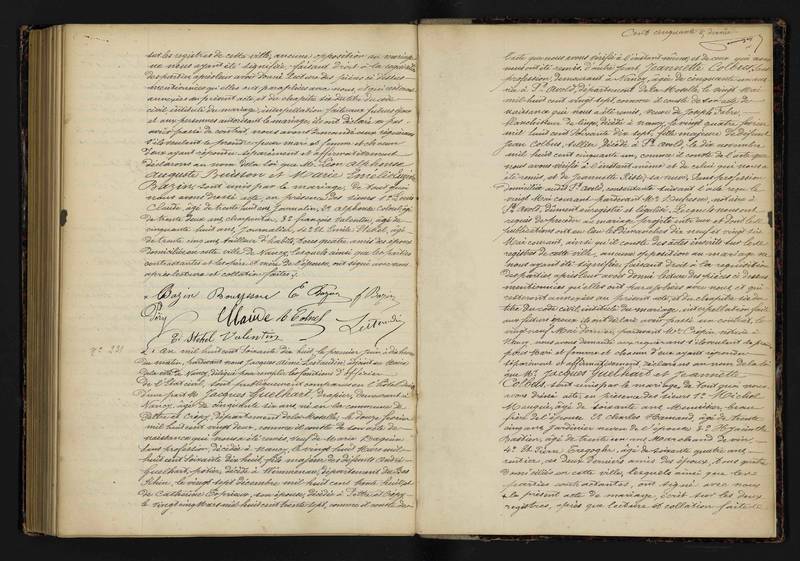 sur les registres de cette ville, aucune opposition au mariage
ne nous ayant été signifiée, faisant droit à la réquisition
des parties après leur avoir donné lecture des pièces ci-dessus
mentionnées qu'elles ont paraphées avec nous, et qui resteront
annexées au présent acte, et du chapitre six du titre du code
civil intitulé du mariage, interpellation faite aux futurs époux
et aux personnes autorisant le mariage, ils ont déclaré ne pas
avoir passé de contrat, nous avons demandé aux requérants
s'ils veulent se prendre pour mari et femme et chacun
d'eux ayant répondu séparément et affirmativement
déclarons au nom de la loi que Mr Léon Alphonse
Auguste Buisson et Marie Emélie
Bazin, sont unis par le mariage, de tout quoi
nous avons dressé acte, en présence des sieurs 1°
Claude, âgé de trente huit ans, Journalier, 2° Alphonse Colnel âgé
de trente deux ans, charpentier, 3° François Valentin, âgé de
cinquante huit ans, Journalier, 4° Et. Emile Stekel, âgé
de trente cinq ans, tailleur d'habits, tous quatre amis des époux
domiciliés en cette ville de Nancy, lesquels ainsi que les parties
contractantes et les père et mère de l'épouse, ont signé avec nous
après lecture et collation faites.
Bazin E Bazin f Bazin
Claude A Colnel
E. Stekel Valentin
N° 231
L'an mil huit cent soixante dix huit, le premier Juin à dix heures
du matin, pardevant nous Jacques
de la ville de Nancy, délégué pour remplir les fonctions d'officier
de l'Etat civil, sont publiquement comparus en l'hôtel de ville
d'une part Mr Jacques Guelhart, drapier, demeurant à
Nancy, âgé de cinquante six ans, né en la commune de
Pettre et Crépy, département de la Moselle, le douze février
mil huit cent vingt deux, comme il conste de son acte de
naissance qui nous a été remis, veuf de Marie
sans profession, décédée à Nancy, le vingt huit Mars mil
huit cent soixante dix huit, fils majeur des défunts André
Guelhart, potier, décédé à Wimmenau, département du Bas
Rhin, le vingt sept décembre mil huit cent trente huit, et
de Catherine son épouse, décédée à Pettre et Crépy
le vingt cinq Mars mil huit cent trente sept, comme il conste des
Cent cinquante &
actes que nous avons vérifié à l'instant même, et de ceux qui nous
ont été remis, d'autre part Jeannette Colbus, sans
profession, demeurant à Nancy, âgée de cinquante un ans
née à St. Avold, département de la Moselle, le vingt Mai
mil huit cent vingt sept, comme il conste de son acte de
naissance qui nous a été remis, veuve de Joseph
blanchisseur de linge, décédé à Nancy, le vingt quatre février
mil huit cent soixante dix sept, fille majeure des défunts
Jean Colbus, sellier, décédé à St. Avold, le dix novembre
mil huit cent cinquante un, comme il conste de l'acte que
nous avons vérifié à l'instant même et de celui qui nous a
été remis, et de Jeannette sa veuve, sans profession
domiciliée audit St. Avold, consentante suivant l'acte reçu le
vingt Mai courant pardevant Mr. Dufresne, notaire à
St. Avold, dûment enregistré et légalisé. Lesquels nous ont
requis de procéder au mariage projeté entre eux et dont les
publications ont eu lieu les Dimanches dix neuf et vingt six
Mai courant, ainsi qu'il conste des actes inscrits sur les
registres de cette ville, aucune opposition au mariage ne
nous ayant été signifiée, faisant droit à la réquisition
des parties après leur avoir donné lecture des pièces ci-dessus
mentionnées qu'elles ont paraphées avec nous et qui
resteront annexées au présent acte, et du chapitre six du
titre du code civil intitulé du mariage, interpellation faite
aux futurs époux, ils ont déclaré avoir passé un contrat, le
vingt neuf Mai dernier, pardevant Me. notaire à
Nancy, nous avons demandé aux requérants s'ils veulent se prendre
pour mari et femme et chacun d'eux ayant répondu
séparément et affirmativement, déclarons au nom de la loi
que Mr. Jacques Guelhart et Jeannette
Colbus, sont unis par le mariage, de tout quoi nous
avons dressé acte, en présence des sieurs 1° Michel
âgé de soixante ans, Menuisier, beau
frère de l'épouse, 2° Charles âgé de trente
cinq ans, Jardinier, neveu de l'épouse, 3° Hyacinthe
âgé de trente un ans, Marchand de vin,
4° Et. Pierre âgé de soixante quatre ans,
rentier, ces deux derniers amis des époux, tous quatre
domiciliés en cette ville, lesquels ainsi que les
parties contractantes, ont signé avec nous
le présent acte de mariage, écrit sur les deux
registres, après que lecture et collation faites